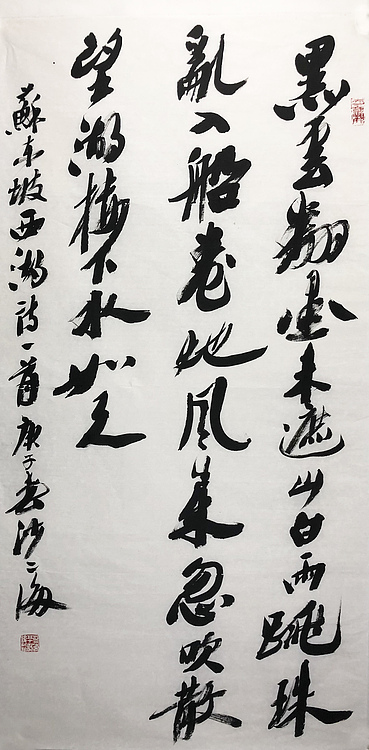 黑雲翻墨未遮山白雨跳珠
亂入船卷地風來忽吹散
望湖樓下水如天
蘇東坡西湖詩一首庚子春沙海